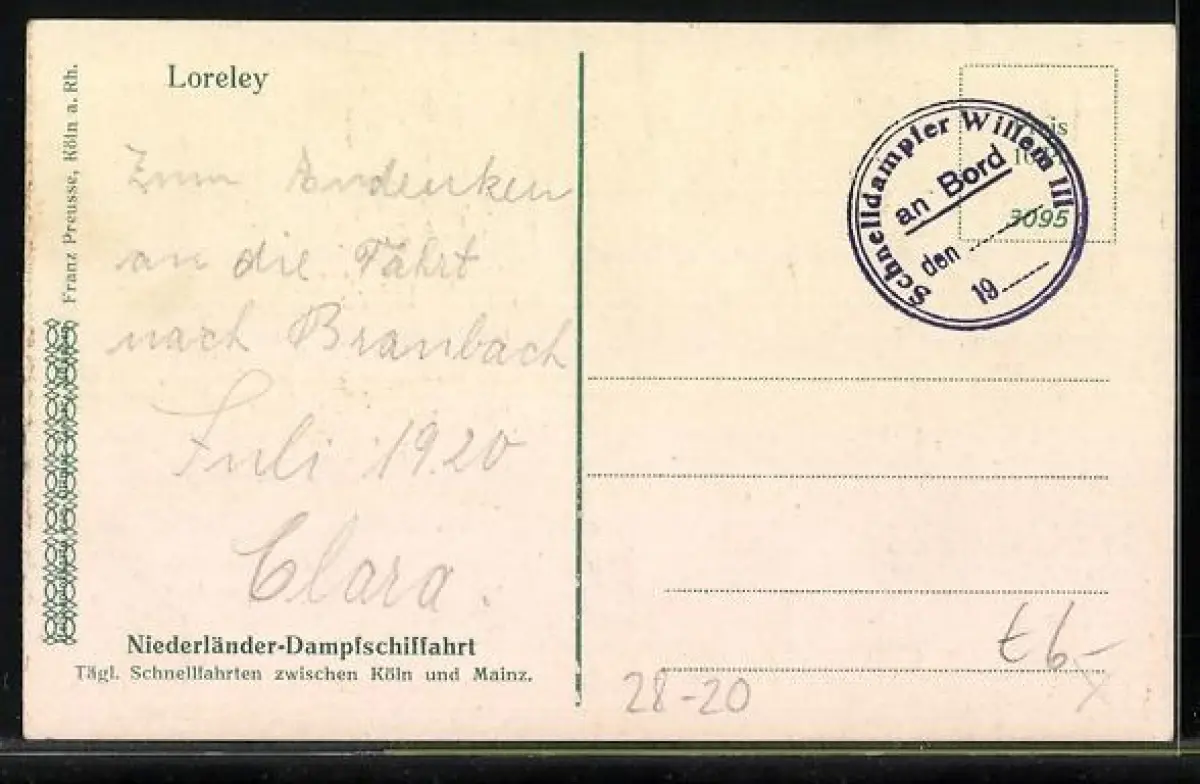 Loreley
Franz Preusse, Köln a. Rh.
Zum Andenken
an die Fahrt
nach Braubach
Juli 1920
Clara.
Niederländer-Dampfschiffahrt
Tägl. Schnellfahrten zwischen Köln und Mainz.
Schnelldampfer Willem III
an Bord
den
19
3095
28-20
6-